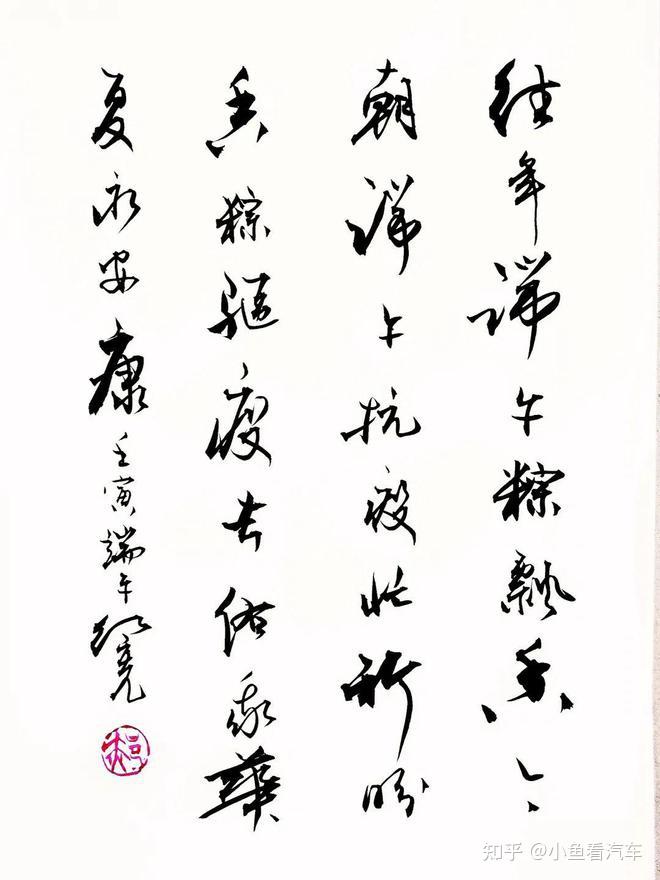 往年端午粽飘香今
朝端午抗疫忙祈盼
香粽驱疫去佑我華
夏永安康壬寅端午
知乎 @小鱼看汽车